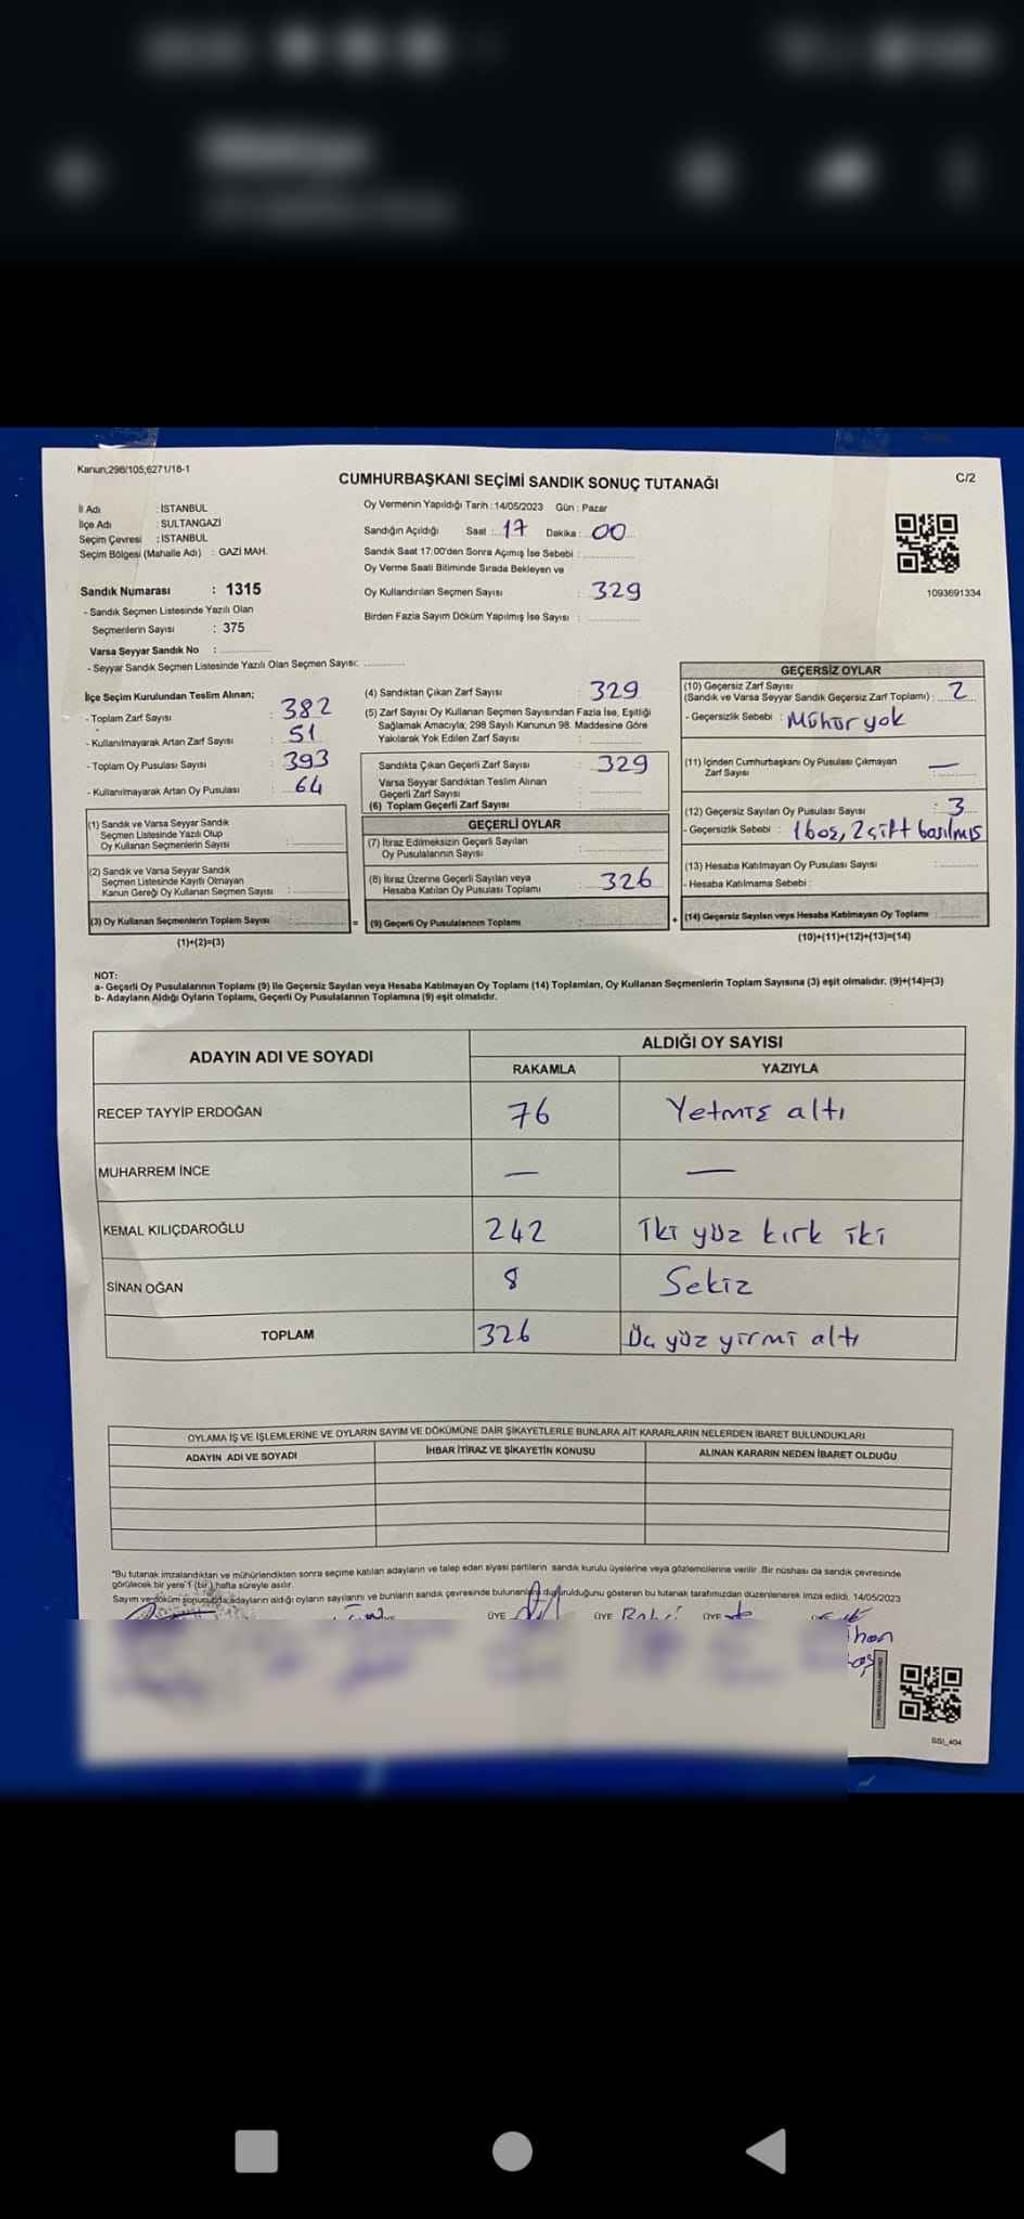 Kanun;298/105;6271/18-1
C/2
CUMHURBAŞKANI SEÇİMİ SANDIK SONUÇ TUTANAĞI
İl Adı : İSTANBUL
İlçe Adı : SULTANGAZİ
Seçim Çevresi : İSTANBUL
Seçim Bölgesi (Mahalle Adı) : GAZİ MAH.
Oy Vermenin Yapıldığı Tarih : 14/05/2023 Gün : Pazar
Sandığın Açıldığı Saat : 17 Dakika : 00
Sandık Saat 17:00'den Sonra Açımış İse Sebebi :
Oy Verme Saati Bitiminde Sırada Bekleyen ve
Oy Kullandırılan Seçmen Sayısı : 329
Birden Fazla Sayım Döküm Yapılmış İse Sayısı :
1093691334
Sandık Numarası : 1315
- Sandık Seçmen Listesinde Yazılı Olan
Seçmenlerin Sayısı : 375
Varsa Seyyar Sandık No :
- Seyyar Sandık Seçmen Listesinde Yazılı Olan Seçmen Sayısı:
İlçe Seçim Kurulundan Teslim Alınan;
- Toplam Zarf Sayısı : 382
- Kullanılmayarak Artan Zarf Sayısı : 51
- Toplam Oy Pusulası Sayısı : 393
- Kullanılmayarak Artan Oy Pusulası : 64
(1) Sandık ve Varsa Seyyar Sandık
Seçmen Listesinde Yazılı Olup
Oy Kullanan Seçmenlerin Sayısı :
(2) Sandık ve Varsa Seyyar Sandık
Seçmen Listesinde Kayıtlı Olmayan
Kanun Gereği Oy Kullanan Seçmen Sayısı :
(3) Oy Kullanan Seçmenlerin Toplam Sayısı =
(1)+(2)=(3)
(4) Sandıktan Çıkan Zarf Sayısı : 329
(5) Zarf Sayısı Oy Kullanan Seçmen Sayısından Fazla İse, Eşitliği
Sağlamak Amacıyla, 298 Sayılı Kanunun 98. Maddesine Göre
Yakılarak Yok Edilen Zarf Sayısı :
Sandıkta Çıkan Geçerli Zarf Sayısı : 329
Varsa Seyyar Sandıktan Teslim Alınan
Geçerli Zarf Sayısı :
(6) Toplam Geçerli Zarf Sayısı
GEÇERLİ OYLAR
(7) İtiraz Edilmeksizin Geçerli Sayılan
Oy Pusulalarının Sayısı :
(8) İtiraz Üzerine Geçerli Sayılan veya
Hesaba Katılan Oy Pusulası Toplamı : 326
(9) Geçerli Oy Pusulalarının Toplamı +
GEÇERSİZ OYLAR
(10) Geçersiz Zarf Sayısı
(Sandık ve Varsa Seyyar Sandık Geçersiz Zarf Toplamı) : 2
- Geçersizlik Sebebi : Mühür yok
(11) İçinden Cumhurbaşkanı Oy Pusulası Çıkmayan
Zarf Sayısı : —
(12) Geçersiz Sayılan Oy Pusulası Sayısı : 3
- Geçersizlik Sebebi : 1 boş, 2 çift basılmış
(13) Hesaba Katılmayan Oy Pusulası Sayısı :
- Hesaba Katılmama Sebebi :
(14) Geçersiz Sayılan veya Hesaba Katılmayan Oy Toplamı :
(10)+(11)+(12)+(13)=(14)
NOT:
a- Geçerli Oy Pusulalarının Toplamı (9) İle Geçersiz Sayılan veya Hesaba Katılmayan Oy Toplamı (14) Toplamları, Oy Kullanan Seçmenlerin Toplam Sayısına (3) eşit olmalıdır. (9)+(14)=(3)
b- Adayların Aldığı Oyların Toplamı, Geçerli Oy Pusulalarının Toplamına (9) eşit olmalıdır.
ADAYIN ADI VE SOYADI
ALDIĞI OY SAYISI
RAKAMLA YAZIYLA
RECEP TAYYİP ERDOĞAN 76 Yetmiş altı
MUHARREM İNCE — —
KEMAL KILIÇDAROĞLU 242 İki yüz kırk iki
SİNAN OĞAN 8 Sekiz
TOPLAM 326 Üç yüz yirmi altı
OYLAMA İŞ VE İŞLEMLERİNE VE OYLARIN SAYIM VE DÖKÜMÜNE DAİR ŞİKAYETLERLE BUNLARA AİT KARARLARIN NELERDEN İBARET BULUNDUKLARI
ADAYIN ADI VE SOYADI İHBAR İTİRAZ VE ŞİKAYETİN KONUSU ALINAN KARARIN NEDEN İBARET OLDUĞU
*Bu tutanak imzalandıktan ve mühürlendikten sonra seçime katılan adayların ve talep eden siyasi partilerin sandık kurulu üyelerine veya gözlemcilerine verilir. Bir nüshası da sandık çevresinde
görülecek bir yere 1 (bir) hafta süreyle asılır.
Sayım ve döküm sonucunda adayların aldığı oyların sayılarını ve bunların sandık çevresinde bulunanlara duyurulduğunu gösteren bu tutanak tarafımızdan düzenlenerek imza edildi. 14/05/2023
ÜYE ÜYE ÜYE
SSI_404